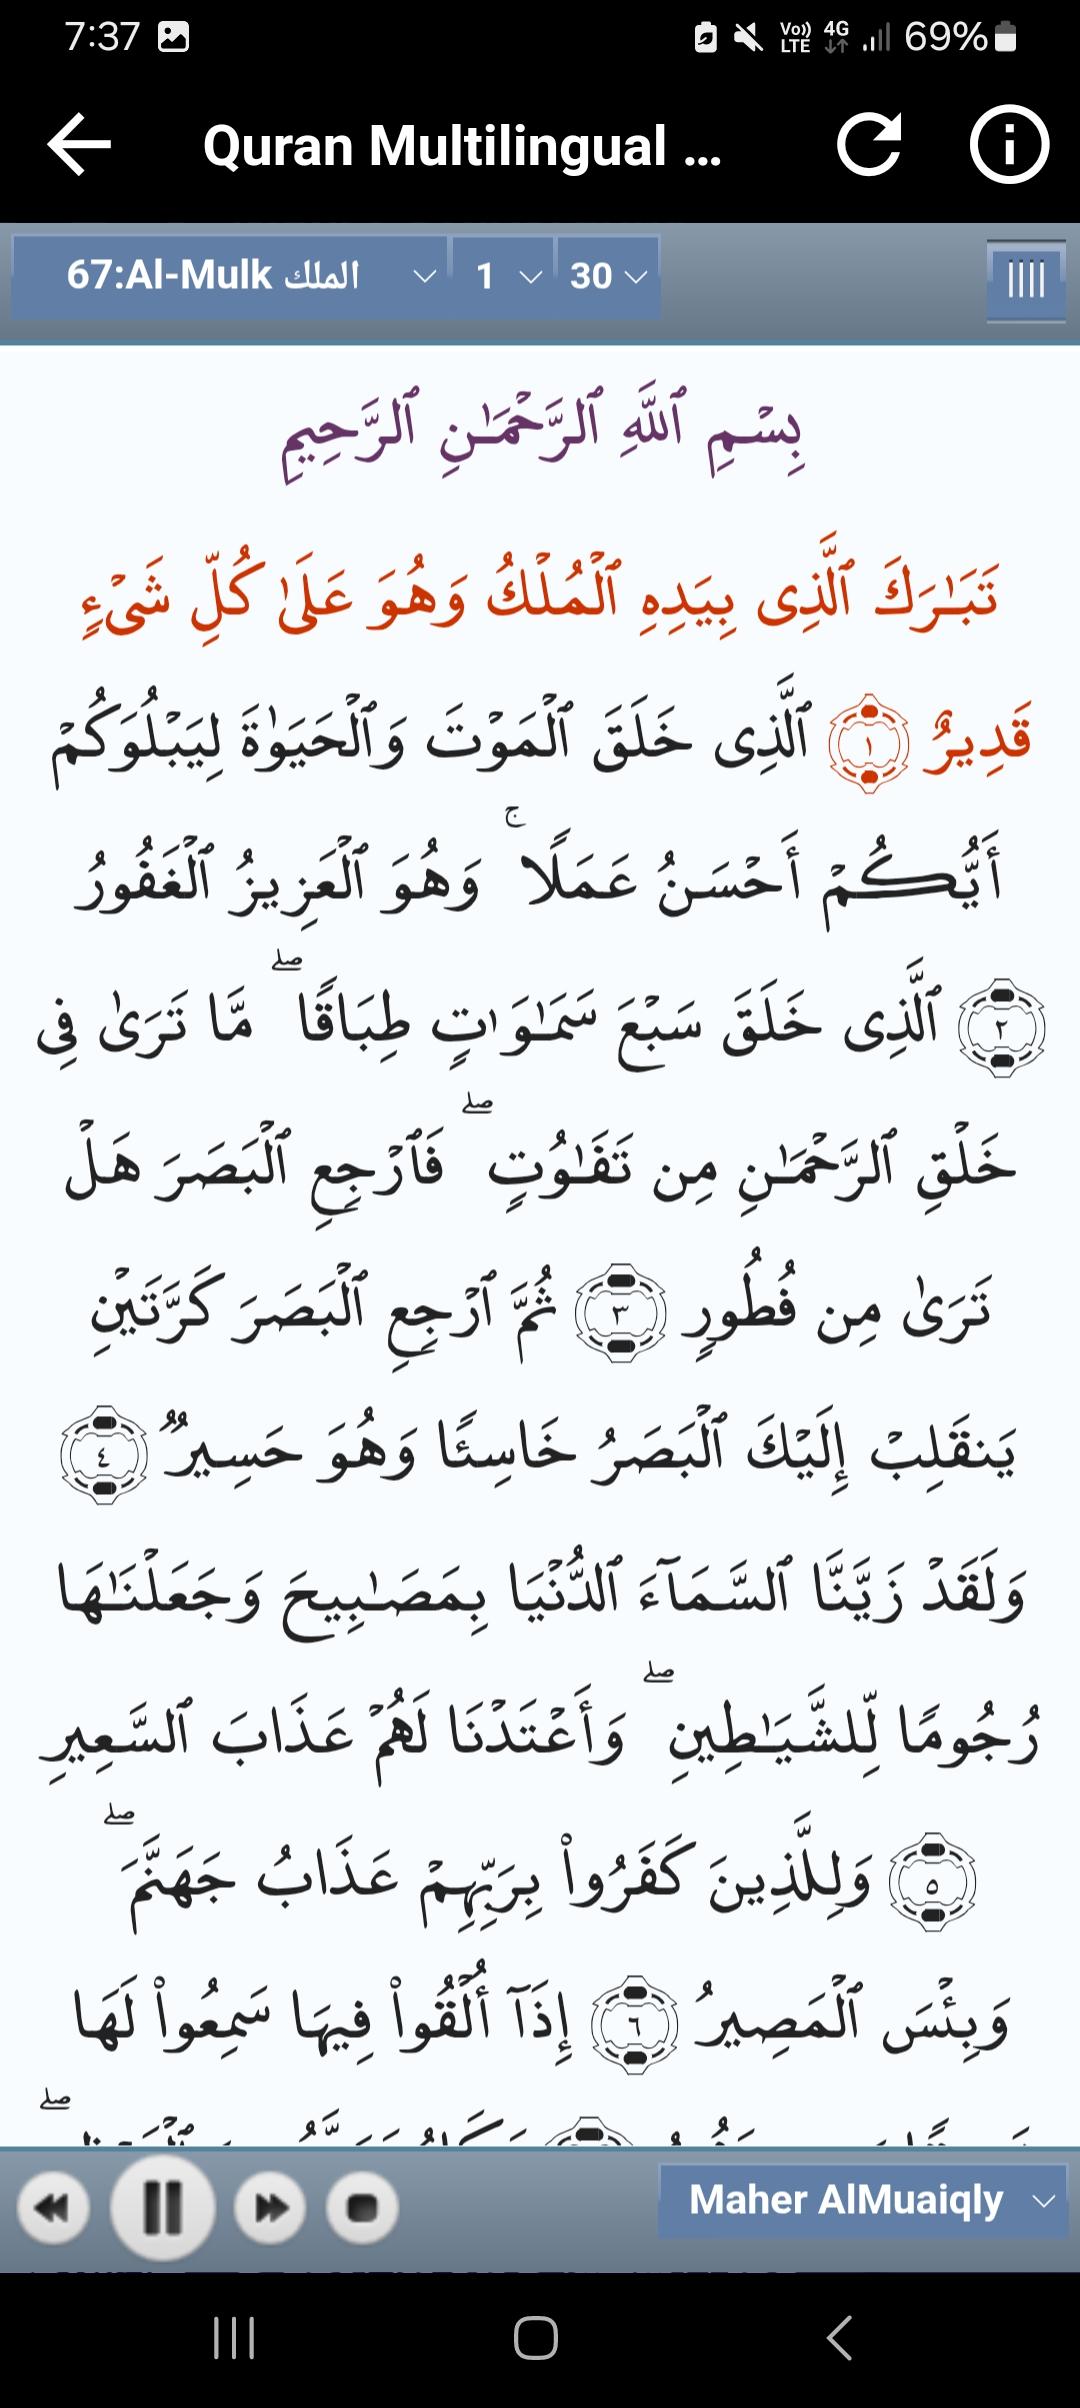 7:37 Vo)) LTE 4G 69%
Quran Multilingual ...
67:Al-Mulk الملك 1 30
بِسْمِ ٱللَّهِ ٱلرَّحْمَـٰنِ ٱلرَّحِيمِ
تَبَـٰرَكَ ٱلَّذِى بِيَدِهِ ٱلْمُلْكُ وَهُوَ عَلَىٰ كُلِّ شَىْءٍ
قَدِيرٌ ١ ٱلَّذِى خَلَقَ ٱلْمَوْتَ وَٱلْحَيَوٰةَ لِيَبْلُوَكُمْ
أَيُّكُمْ أَحْسَنُ عَمَلًا ۚ وَهُوَ ٱلْعَزِيزُ ٱلْغَفُورُ
٢ ٱلَّذِى خَلَقَ سَبْعَ سَمَـٰوَٰتٍ طِبَاقًا ۖ مَّا تَرَىٰ فِى
خَلْقِ ٱلرَّحْمَـٰنِ مِن تَفَـٰوُتٍ ۖ فَٱرْجِعِ ٱلْبَصَرَ هَلْ
تَرَىٰ مِن فُطُورٍ ٣ ثُمَّ ٱرْجِعِ ٱلْبَصَرَ كَرَّتَيْنِ
يَنقَلِبْ إِلَيْكَ ٱلْبَصَرُ خَاسِئًا وَهُوَ حَسِيرٌ ٤
وَلَقَدْ زَيَّنَّا ٱلسَّمَآءَ ٱلدُّنْيَا بِمَصَـٰبِيحَ وَجَعَلْنَـٰهَا
رُجُومًا لِّلشَّيَـٰطِينِ ۖ وَأَعْتَدْنَا لَهُمْ عَذَابَ ٱلسَّعِيرِ
٥ وَلِلَّذِينَ كَفَرُوا۟ بِرَبِّهِمْ عَذَابُ جَهَنَّمَ ۖ
وَبِئْسَ ٱلْمَصِيرُ ٦ إِذَآ أُلْقُوا۟ فِيهَا سَمِعُوا۟ لَهَا
Maher AlMuaiqly